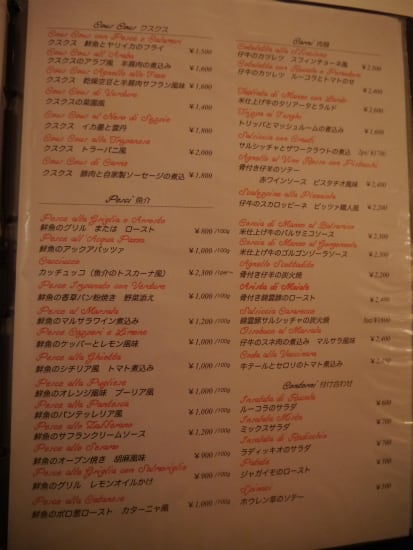 Cous Cous クスクス
Cous Cous con Pesce e Calamari
クスクス 鮮魚とヤリイカのフライ ￥1,500
Cous Cous all'Araba
クスクスのアラブ風 羊肩肉の煮込 ￥1,800
Cous Cous Agnello alla
クスクス 乾燥空豆と羊肩肉サフラン風味 ￥1,600
Cous Cous di Verdure
クスクスの菜園風 ￥1,400
Cous Cous al Nero di Seppie
クスクス イカ墨と雲丹 ￥1,800
Cous Cous alla Trapanese
クスクス トラーパニ風 ￥2,000
Cous Cous di Carne
クスクス 豚肉と自家製ソーセージの煮込 ￥1,800
Pesci 魚介
Pesce alla Griglia o Arrosto
鮮魚のグリル または ロースト ￥800 /100g
Pesce all'Acqua Pazza
鮮魚のアックアパッツァ ￥1,000 /100g
Cacciucco
カッチュッコ (魚介のトスカーナ風) ￥2,300
Pesce Impanato con Verdure
鮮魚の香草パン粉焼き 野菜添え ￥1,000 /100g
Pesce al Marsala
鮮魚のマルサラワイン煮込み ￥1,200 /100g
Pesce Capperi e Limone
鮮魚のケッパーとレモン風味 ￥1,000 /100g
Pesce alla Ghiotta
鮮魚のシチリア風 トマト煮込み ￥1,000 /100g
Pesce alla Pugliese
鮮魚のオレンジ風味 プーリア風 ￥1,000 /100g
Pesce alla Pantesca
鮮魚のパンテッレリア風 ￥1,000 /100g
Pesce allo Zafferano
鮮魚のサフランクリームソース ￥1,200 /100g
Pesce allo Sesamo
鮮魚のオーブン焼き 胡麻風味 ￥900 /100g
Pesce alla Griglia con Salmoriglio
鮮魚のグリル レモンオイルかけ ￥900 /100g
Pesce alla Catanese
鮮魚のポロ葱ロースト カターニャ風 ￥1,000 /100g
Carni 肉類
Cotoletta alla
仔牛のカツレツ スフィンチョーネ風 ￥2,500
Cotoletta con Rucola e Pomodoro
仔牛のカツレツ ルーコラとトマトのせ ￥2,400
Tagliata di Manzo con Lardo
米仕上げ牛のタリアータとラルド ￥2,600
Trippa ai Funghi
トリッパとマッシュルームの煮込み ￥1,600
Salsiccia con Crauti
サルシッチャとザワークラウトの煮込 2pc/ ￥1700
Agnello al Vino Rosso con Pistacchi
骨付き仔羊のソテー
赤ワインソース ピスタチオ風味 ￥2,400
Scaloppina alla Pizzaiola
仔牛のスカロッピーネ ピッツァ職人風 ￥2,200
Coscia di Manzo al Balsamico
米仕上げ牛のバルサミコソース ￥2,500
Coscia di Manzo al Gorgonzola
米仕上げ牛のゴルゴンゾーラソース ￥2,500
Agnello Scottadito
骨付き仔羊の炭火焼 ￥2,400
Arista di Maiale
骨付き錦雲豚のロースト ￥2,400
Salsiccia
錦雲豚サルシッチャの炭火焼
Ossobuco al Marsala
仔牛のスネ肉の煮込み マルサラ風味 ￥2,400
Coda alla Vaccinara
牛テールとセロリのトマト煮込み ￥2,400
Contorni 付け合わせ
Insalata di Rucola
ルーコラのサラダ ￥600
Insalata Mista
ミックスサラダ ￥700
Insalata di Radicchio
ラディッキオのサラダ ￥700
Patate
ジャガイモのロースト ￥500
Spinaci
ホウレン草のソテー ￥500